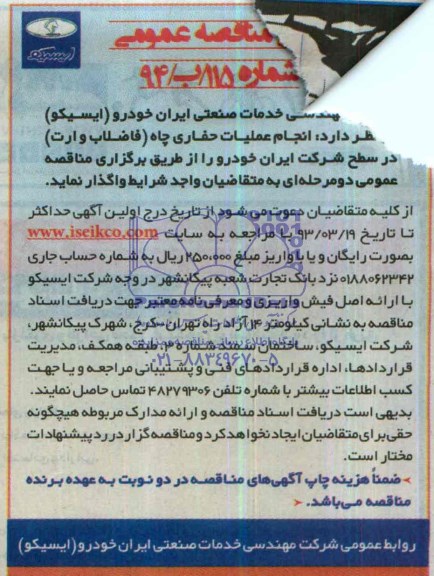 ایسیکو
مناقصه عمومی
شماره ۱۱۵/ب/۹۴
مهندسی خدمات صنعتی ایران خودرو (ایسیکو)
نظر دارد: انجام عملیات حفاری چاه (فاضلاب و ارت)
در سطح شرکت ایران خودرو را از طریق برگزاری مناقصه
عمومی دومرحله‌ای به متقاضیان واجد شرایط واگذار نماید.
از کلیه متقاضیان دعوت می‌شود از تاریخ درج اولین آگهی حداکثر
تا تاریخ ۹۳/۰۳/۱۹ با مراجعه به سایت www.iseikco.com
بصورت رایگان و یا با واریز مبلغ ۲۵۰،۰۰۰ ریال به شماره حساب جاری
۰۱۸۸۰۶۲۳۴۲ نزد بانک تجارت شعبه پیکانشهر در وجه شرکت ایسیکو
با ارائه اصل فیش واریزی و معرفی نامه معتبر جهت دریافت اسناد
مناقصه به نشانی کیلومتر ۱۴ آزاد راه تهران-کرج، شهرک پیکانشهر،
شرکت ایسیکو، ساختمان ستاد شماره ۳، طبقه همکف، مدیریت
قراردادها، اداره قراردادهای فنی و پشتیبانی مراجعه و یا جهت
۰۲۱-۸۸۳۴۹۶۷۰-۵
کسب اطلاعات بیشتر با شماره تلفن ۴۸۲۷۹۳۰۶ تماس حاصل نمایند.
بدیهی است دریافت اسناد مناقصه و ارائه مدارک مربوطه هیچگونه
حقی برای متقاضیان ایجاد نخواهد کرد و مناقصه گزار در رد پیشنهادات
مختار است.
ضمناً هزینه چاپ آگهی‌های مناقصه در دو نوبت به عهده برنده
مناقصه می‌باشد.
روابط عمومی شرکت مهندسی خدمات صنعتی ایران خودرو (ایسیکو)